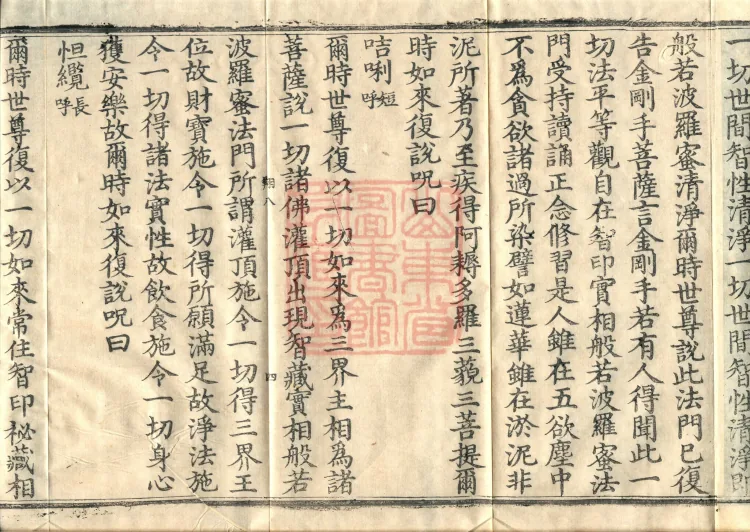 一切世間智性清淨一切世間智性清淨即
般若波羅蜜清淨爾時世尊說此法門已復
告金剛手菩薩言金剛手若有人得聞此一
切法平等觀自在智印實相般若波羅蜜法
門受持讀誦正念修習是人雖在五欲塵中
不爲貪欲諸過所染譬如蓮華雖在淤泥非
泥所著乃至疾得阿耨多羅三藐三菩提爾
時如來復說呪曰
咭唎短呼
爾時世尊復以一切如來爲三界主相爲諸
菩薩說一切諸佛灌頂出現智藏實相般若
翔八 四
波羅蜜法門所謂灌頂施令一切得三界王
位故財寶施令一切得所願滿足故淨法施
令一切得諸法實性故飲食施令一切身心
獲安樂故爾時如來復說呪曰
怛纜長呼
爾時世尊復以一切如來常住智印祕藏相